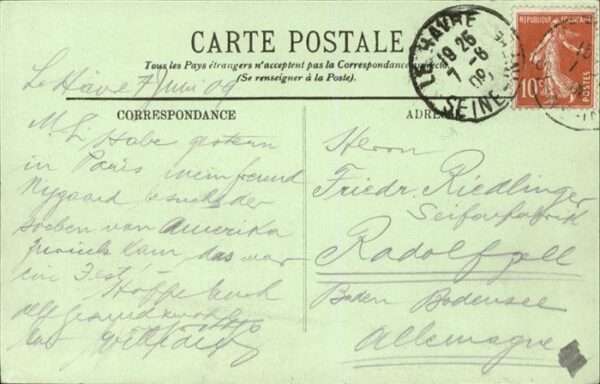 CARTE POSTALE
Tous les Pays étrangers n'acceptent pas la Correspondance au recto
(Se renseigner à la Poste).
LE HAVRE
19 25
7 - 6
09
SEINE-INF
REPUBLIQUE FRANÇAISE
10c
POSTES
Le Havre 7 Juni 09
CORRESPONDANCE
M. L! Habe gestern
in Paris mein freund
Nygaard besucht der
soeben von Amerika
zurück kam, das war
ein Fest! -
Hoffe Euch
alle gesund
ADRE
Herrn
Friedr. Riedlinger
Seifenfabrik
Radolfzell
Baden Bodensee
Allemagne